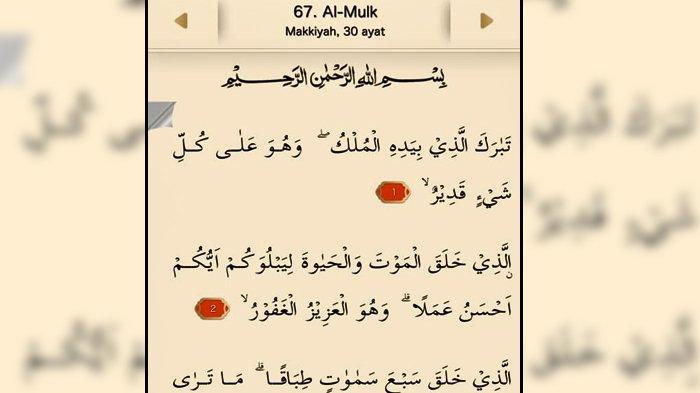 67. Al-Mulk
Makkiyah, 30 ayat
بِسْمِ اللّٰهِ الرَّحْمٰنِ الرَّحِيْمِ
تَبٰرَكَ الَّذِيْ بِيَدِهِ الْمُلْكُ ۖ وَهُوَ عَلٰى كُلِّ
شَيْءٍ قَدِيْرٌ ۙ ١
ۨالَّذِيْ خَلَقَ الْمَوْتَ وَالْحَيٰوةَ لِيَبْلُوَكُمْ اَيُّكُمْ
اَحْسَنُ عَمَلًا ۗ وَهُوَ الْعَزِيْزُ الْغَفُوْرُ ۙ 2
الَّذِيْ خَلَقَ سَبْعَ سَمٰوٰتٍ طِبَاقًا ۗ مَا تَرٰى